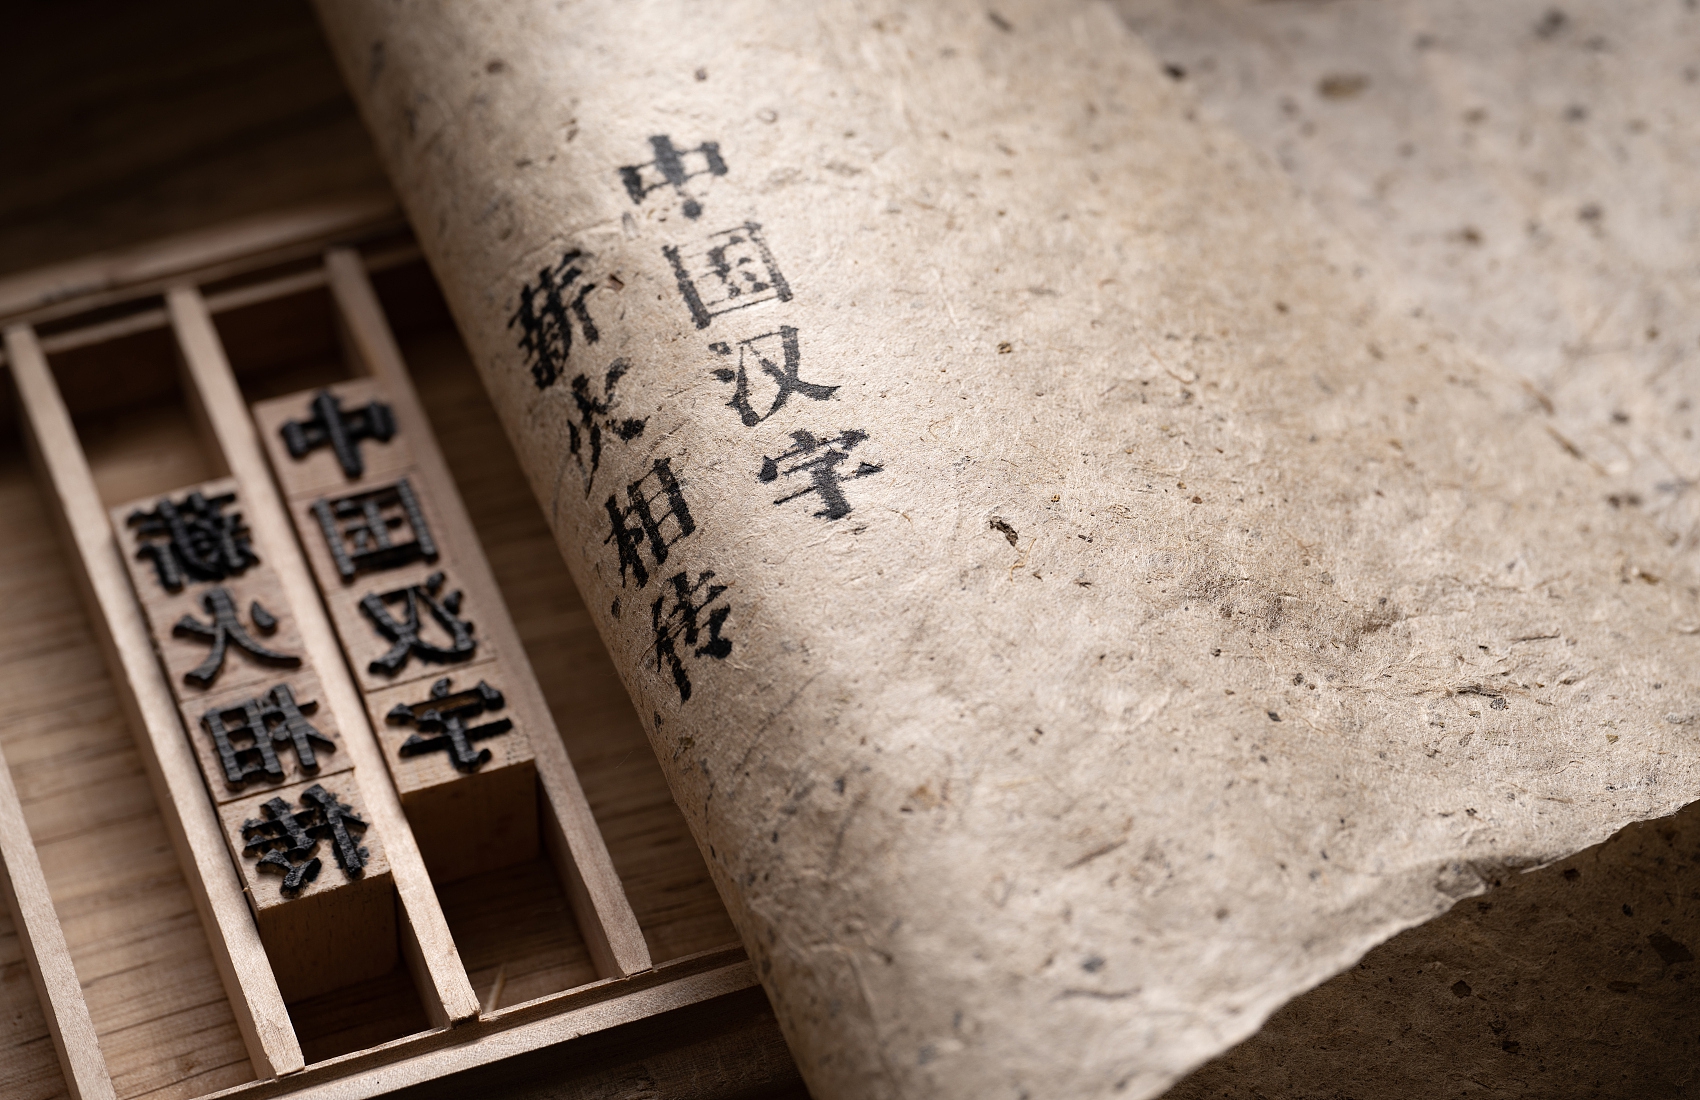 中国汉字
薪火相传
中国汉字
薪火相传